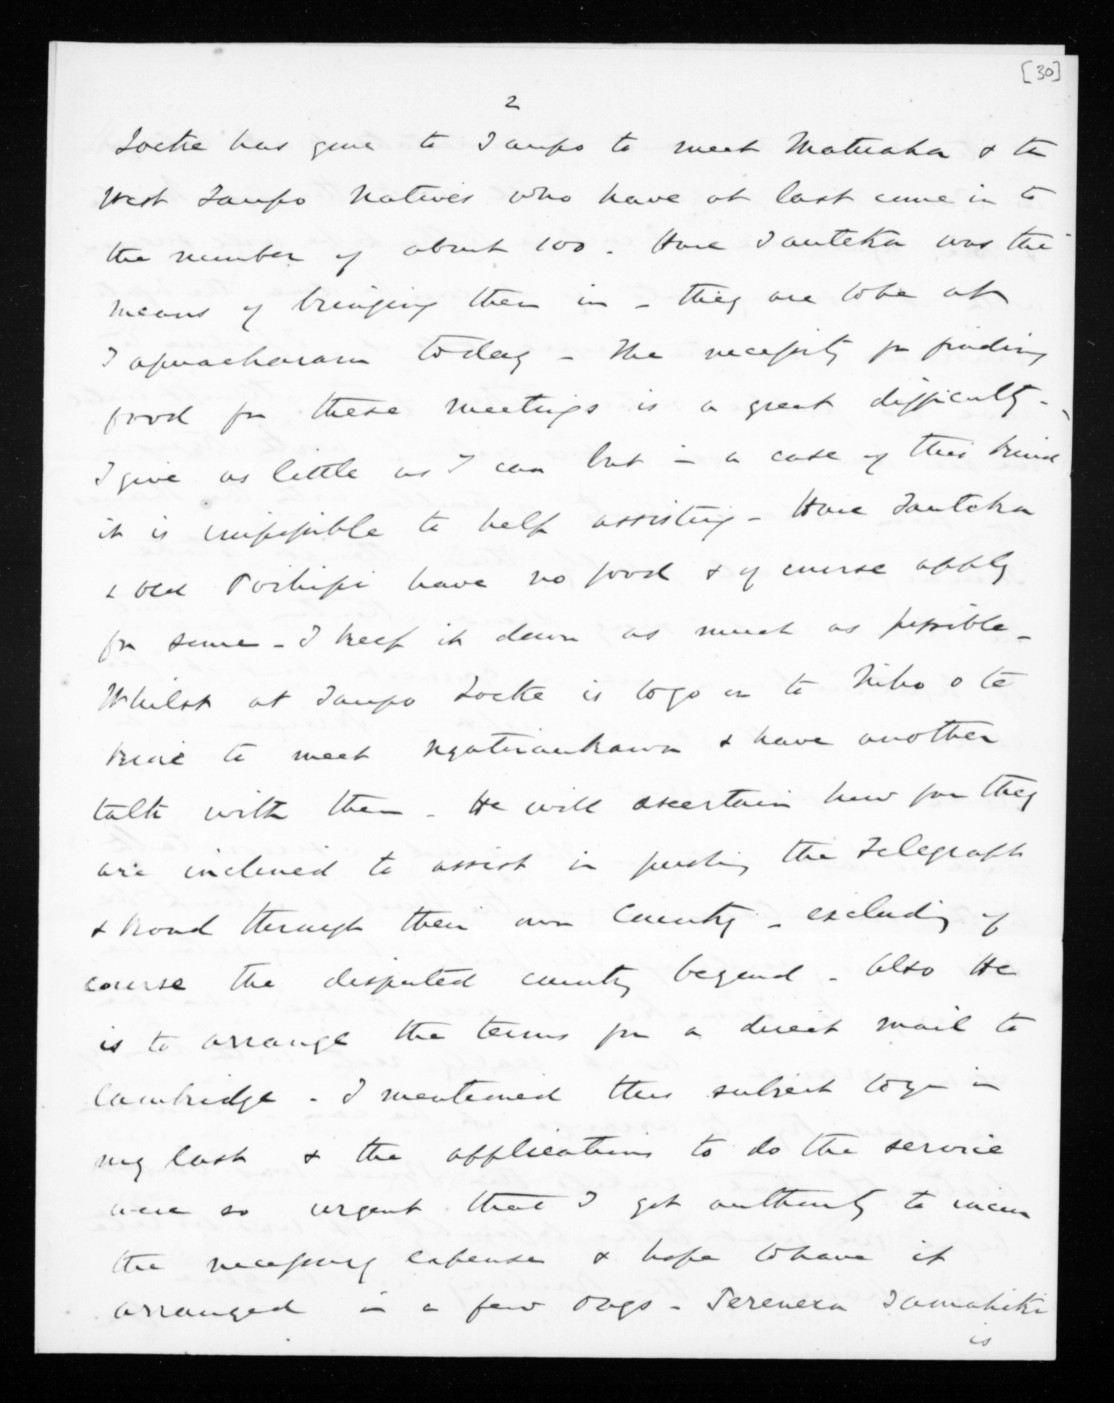 [30]
2
Locke has gone to Taupo to meet Matuaha & the
West Taupo Natives who have at last come in to
the number of about 100. Hare Tauteka was the
means of bringing them in - they are to be at
Tapuaeharuru today - The necessity for finding
food for these meetings is a great difficulty -
I give as little as I can but in a case of this kind
it is impossible to help assisting - Hare Tauteka
& old Poihipi have no food & of course apply
for some - I keep it down as much as possible -
Whilst at Taupo Locke is to go on to Niho o te
Kiore to meet Ngatiraukawa & have another
talk with them - He will ascertain how far they
are inclined to assist in pushing the Telegraph
& Road through their own Country - excluding of
course the disputed country beyond - Also He
is to arrange the terms for a direct mail to
Cambridge - I mentioned this subject to you in
my last & the applications to do the service
were so urgent that I got authority to incur
the necessary expense & hope to have it
arranged in a few days - Tereneha Tamahiki
is